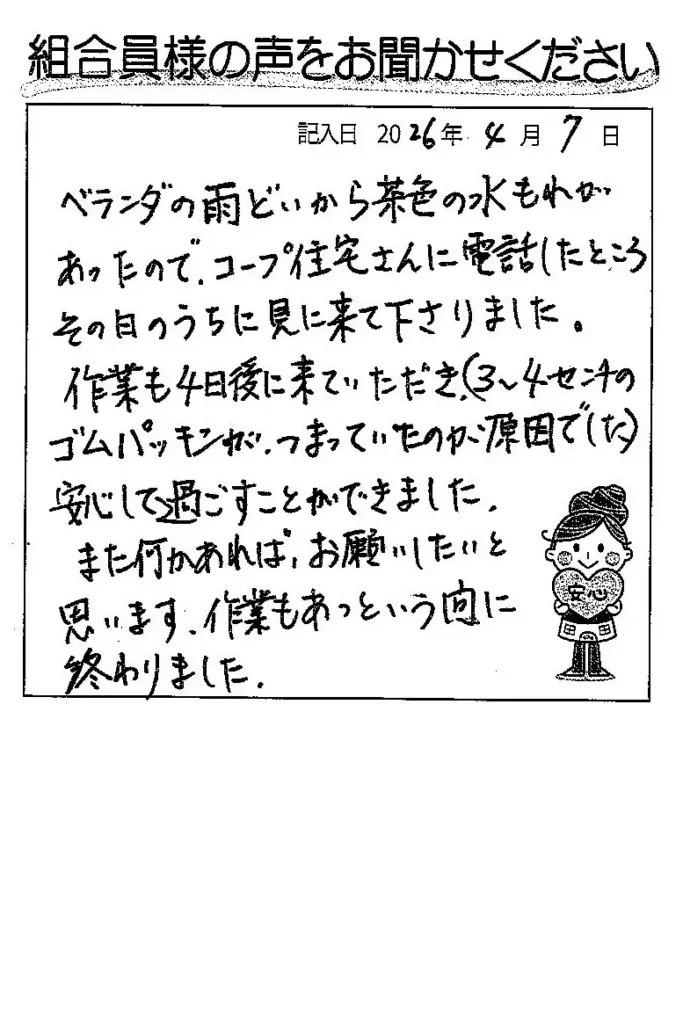 組合員様の声をお聞かせください
記入日 2026年 4月 7日
ベランダの雨どいから茶色の水もれが
あったので、コープ住宅さんに電話したところ
その日のうちに見に来て下さりました。
作業も4日後に来ていただき、(3〜4センチの
ゴムパッキンが、つまっていたのが原因でした)
安心して過ごすことができました。
また何かあれば、お願いしたいと
思います、作業もあっという間に
終わりました。
安心